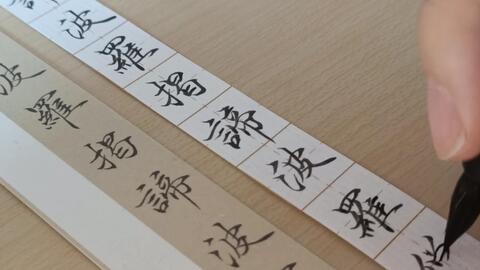 波羅揭諦波羅
波羅揭諦波